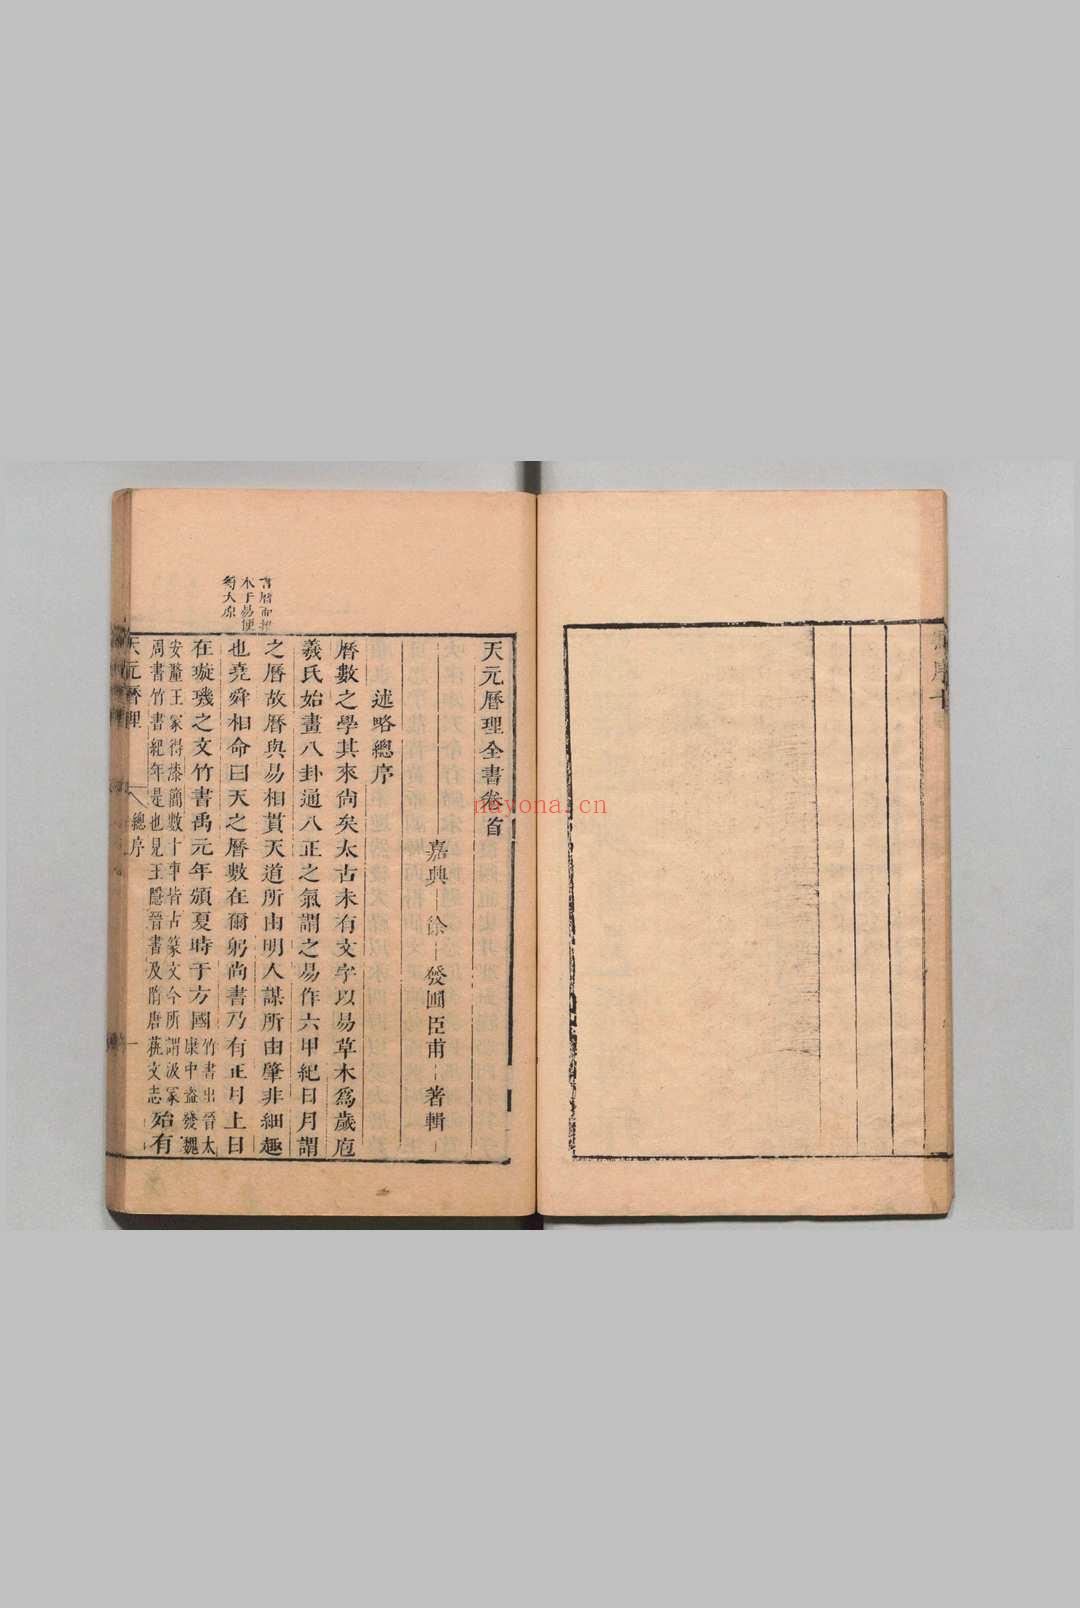 天元曆理全書卷首
嘉興 徐 發圃臣甫 著輯
述略總序
曆數之學其來尚矣太古未有文字以易草木爲歲庖
羲氏始畫八卦通八正之氣謂之易作六甲紀日月謂
之曆故曆與易相貫天道所由明人謀所由肇非細趣
也堯舜相命曰天之曆數在爾躬尚書乃有正月上日
在璇璣之文竹書禹元年頒夏時于方國
竹書出晉太
康中盜發魏
安釐王冢得漆簡數十事皆古篆文今所謂汲冢
周書竹書紀年是也見王隱晉書及隋唐藝文志
始有
言曆而
本于易便
得大原
天元曆理
總序
一
nayona.cn